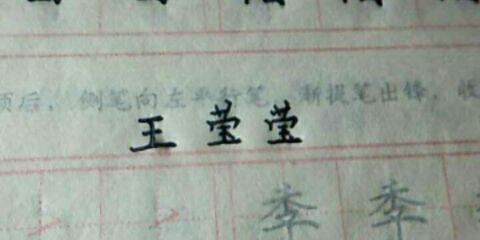 后，侧笔向左平行笔，渐提笔出锋，收
王莹莹
季季